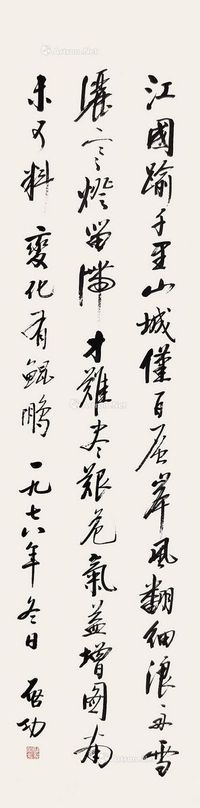 江國踰千里山城僅百層岸風翻細浪舟雪
灑寒燈留滯才難盡艱危氣益增圖南
未可料變化有鯤鵬一九七六年冬日啓功